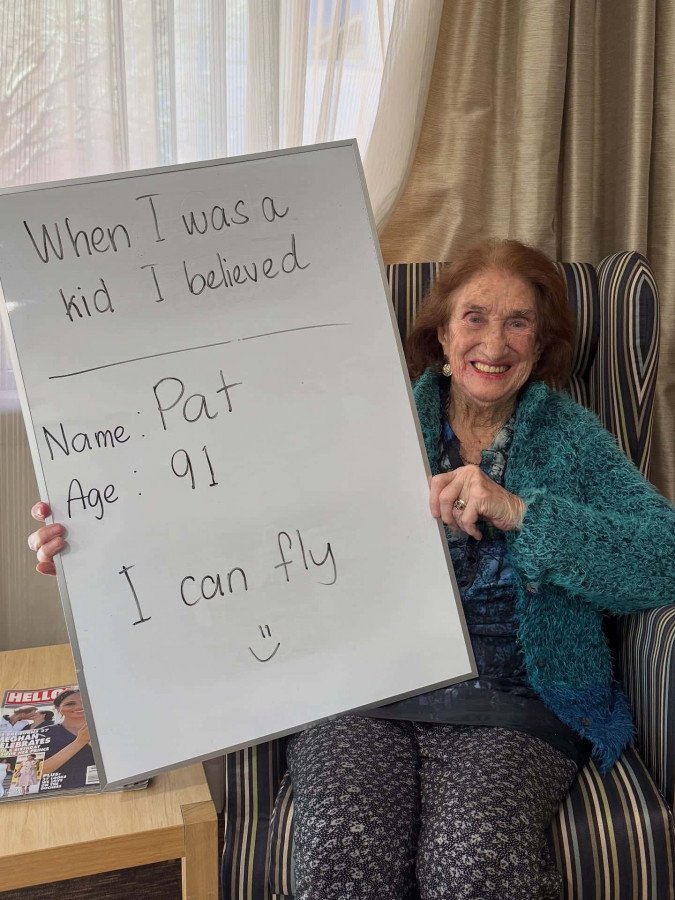 When I was a
kid I believed
Name: Pat
Age: 91
I can fly
HELLO
MEGHAN
CELEBRATES
PLUS: